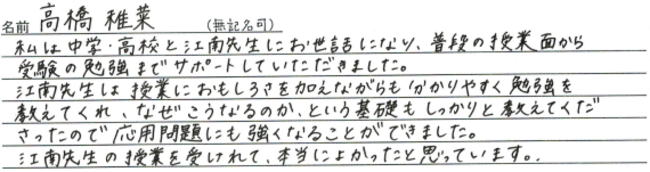 名前 高橋 稚菜 (無記名可)
私は中学・高校と江南先生にお世話になり、普段の授業面から
受験の勉強までサポートしていただきました。
江南先生は授業におもしろさを加えながらも分かりやすく勉強を
教えてくれ、なぜこうなるのか、という基礎もしっかりと教えてくだ
さったので応用問題にも強くなることができました。
江南先生の授業を受けれて、本当によかったと思っています。